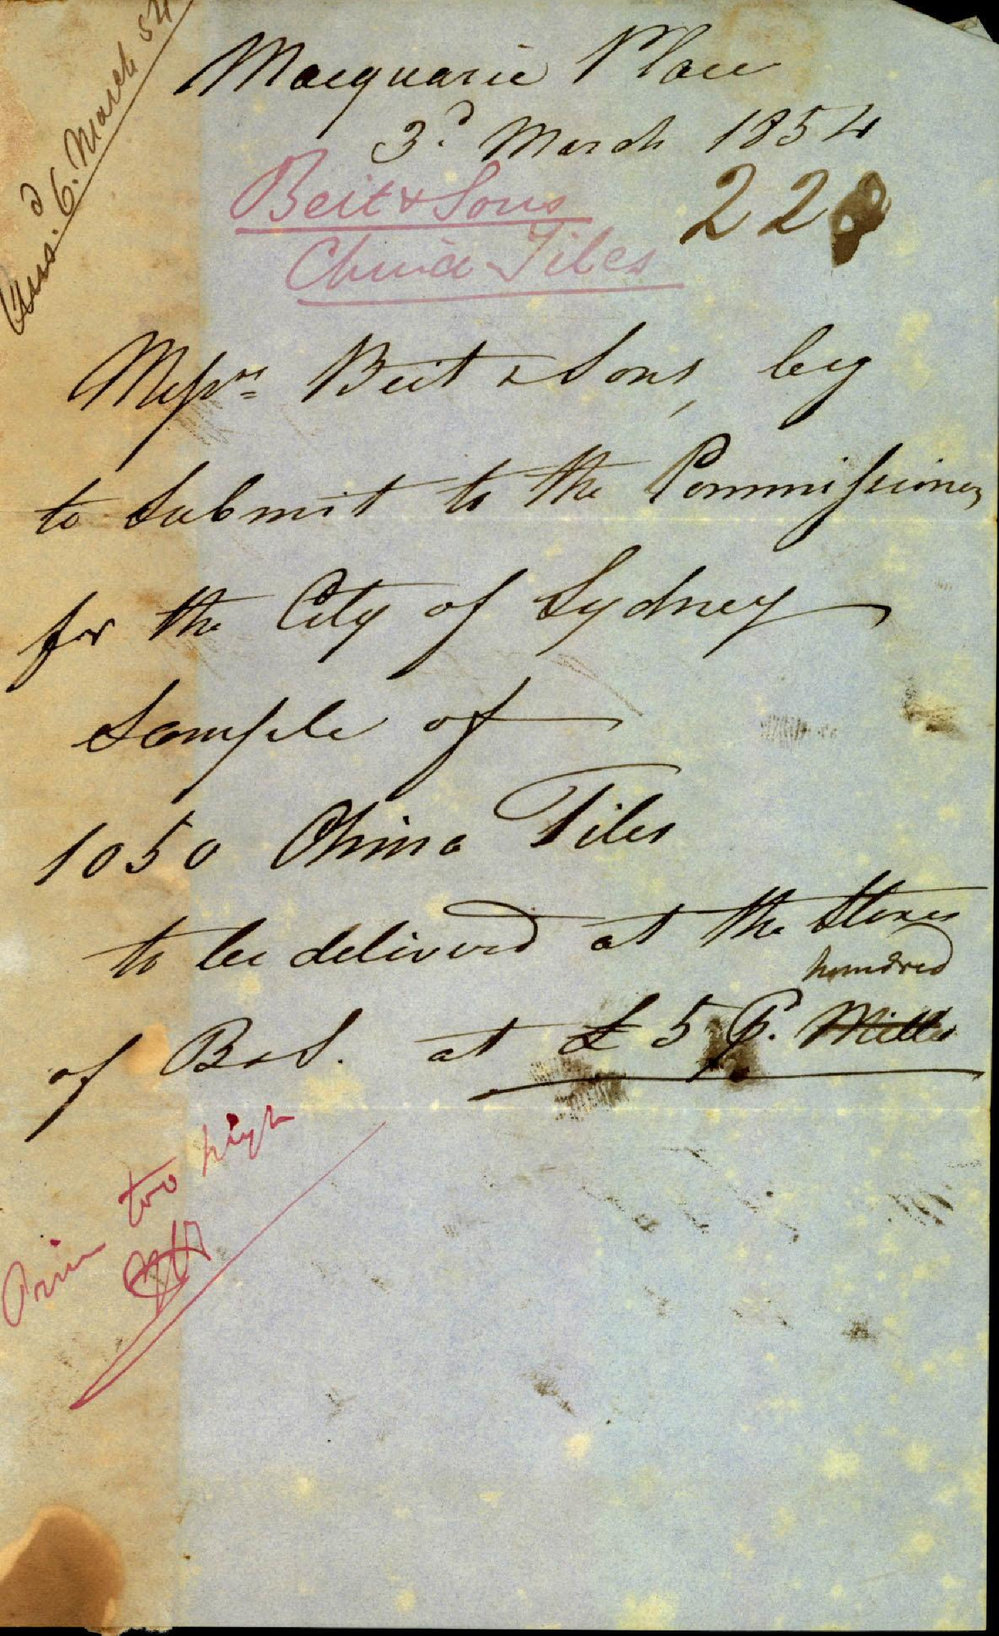 Ansd. 6. March 54
Macquarie Place
3d. March 1854
Beit & Sons
China Tiles
22
Messrs. Beit & Sons, beg
to Submit to the Commissioners
for the City of Sydney
Sample of
1050 China Tiles
to be delivered at the Stores
hundred
of B & S. at £5 p. Mille
Price too high